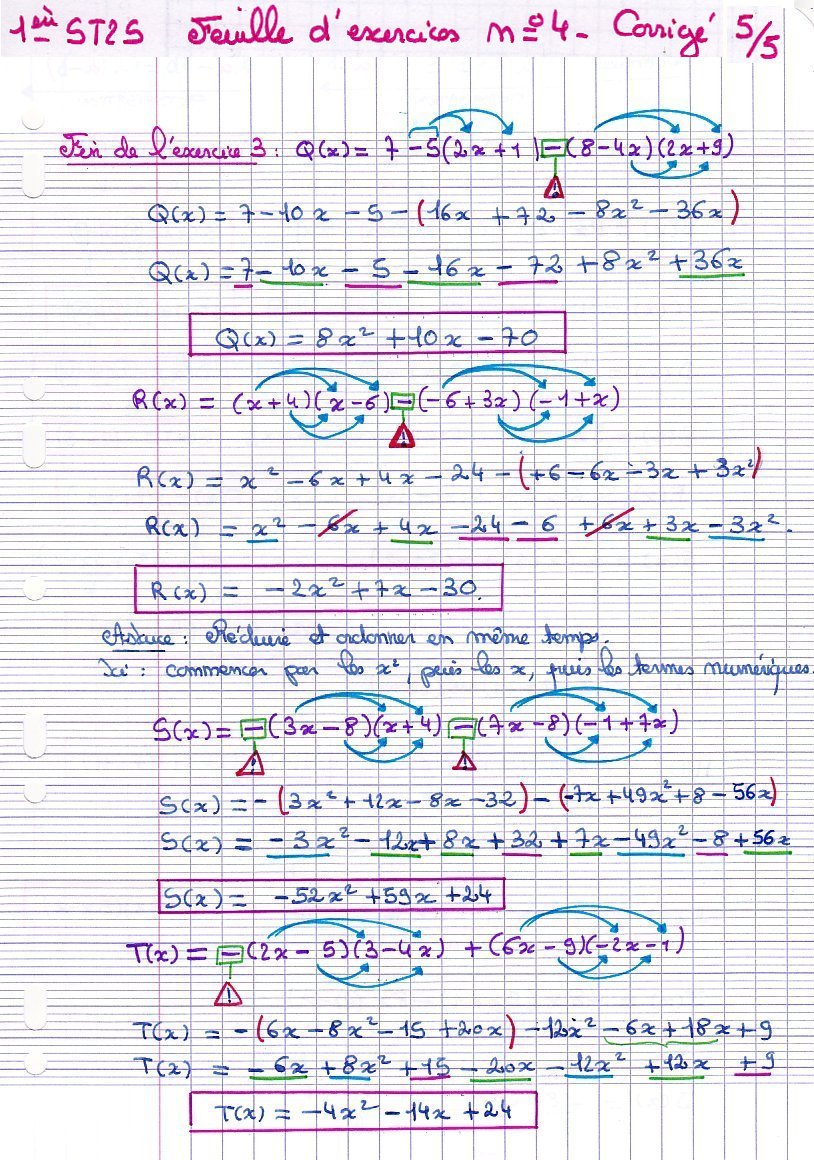 1ère ST2S Feuille d'exercices n°4 - Corrigé 5/5
Fin de l'exercice 3 : Q(x) = 7 - 5(2x + 1) - (8 - 4x)(2x + 9)
Q(x) = 7 - 10x - 5 - (16x + 72 - 8x² - 36x)
Q(x) = 7 - 10x - 5 - 16x - 72 + 8x² + 36x
Q(x) = 8x² + 10x - 70
R(x) = (x + 4)(x - 6) - (-6 + 3x)(-1 + x)
R(x) = x² - 6x + 4x - 24 - (+6 - 6x - 3x + 3x²)
R(x) = x² - 6x + 4x - 24 - 6 + 6x + 3x - 3x².
R(x) = -2x² + 7x - 30.
Astuce : Réduire et ordonner en même temps.
Ici : commencer par les x², puis les x, puis les termes numériques.
S(x) = - (3x - 8)(x + 4) - (7x - 8)(-1 + 7x)
S(x) = - (3x² + 12x - 8x - 32) - (-7x + 49x² + 8 - 56x)
S(x) = - 3x² - 12x + 8x + 32 + 7x - 49x² - 8 + 56x
S(x) = -52x² + 59x + 24
T(x) = - (2x - 5)(3 - 4x) + (6x - 9)(-2x - 1)
T(x) = - (6x - 8x² - 15 + 20x) - 12x² - 6x + 18x + 9
T(x) = - 6x + 8x² + 15 - 20x - 12x² + 12x + 9
T(x) = -4x² - 14x + 24